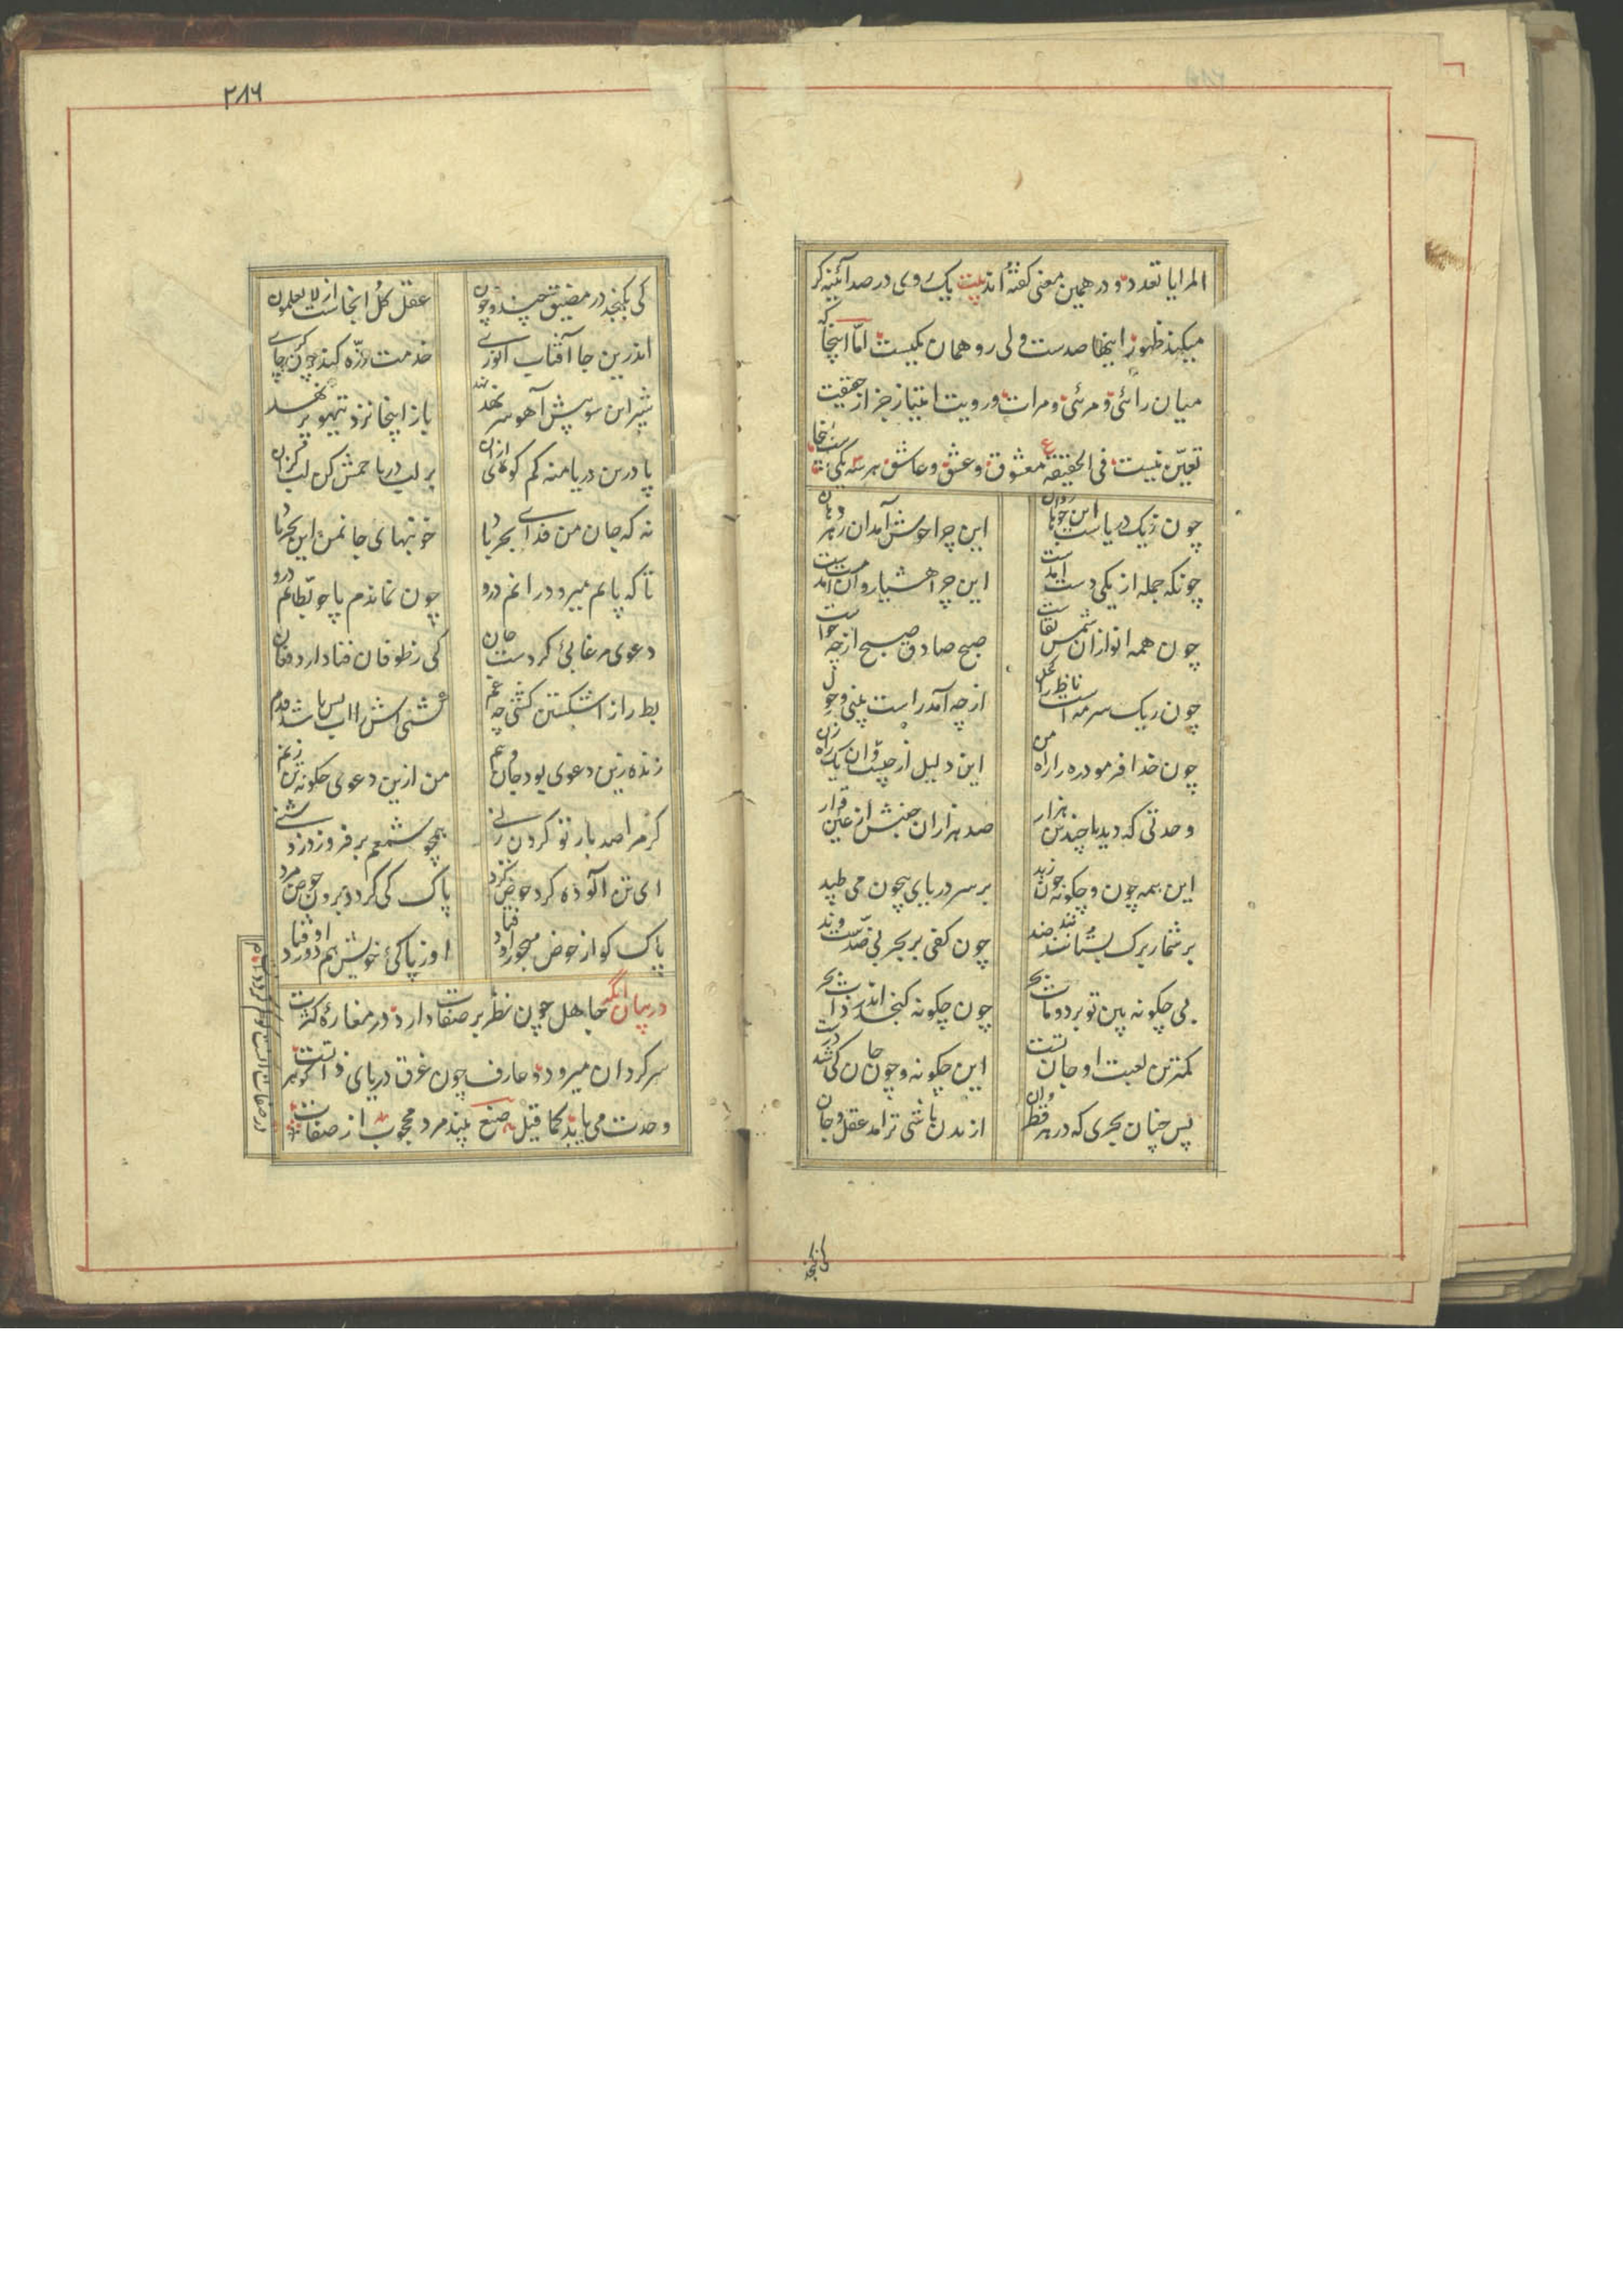 المرایا تعدد و در همین معنی گفته اند بیت یک روی در صد آئینه گر
میکند ظهور اینها صدست ولی رو همان یکیست اما اینجا که
میان رائی و مرئی و مرات و رویت امتیاز جز از حقیقت
تعین نیست فی الحقیقة ع معشوق و عشق و عاشق هر سه یکیست
چون ز یک دریاست این جوها روان این چرا خوش آمد ان زهر دهان
چونکه جمله از یکی دست آمدست این چرا هشیار و ان مست آمدست
چون همه انوار از ان شمس بقاست صبح صادق صبح از چه خواست
چون ز یک سرمه است ناظر را کحل از چه آمد راست بینی و حول
چون خدا فرمود ره را راه من این دلیل از چیست و ان یک راه زن
وحدتی که دید با چندین هزار صد هزاران جنبش از عین قرار
این همه چون و چگونه چون زبد بر سر دریای بیچون می طپد
بر شمار برک بستان نند چون کفی بر بحر بی ضدست وند
بی چگونه بین تو برد و مات بحر چون چگونه گنجد اندر ذات بحر
کمترین لعبت او جان تست این چگونه و چون جان کی شد درست
پس چنان بحری که در هر قطر وان از بدن باشی تر آمد عقل و جان
کی بگنجد در مضیق چند و چون عقل کل اینجاست از لا یعلمون
اندرین جا آفتاب انوری خدمت ذره کند چون چاکری
شیر این سو پیش آهو سر نهد باز اینجا نزد تیهو پر نهد
پا درین دریا منه کم گوی ازان بر لب دریا خمش کن لب گزان
نه که جان من فدای بحر باد خونبهای جان من این بحر داد
تا که پایم میرود رانم درو چون نماندم پا چو بطانم درو
دعوی مرغابی کردست جان کی ز طوفان فنا دارد فغان
بط را ز اشکستن کشتی چه غم کشتی اش در آب پس باشد قدم
زنده زین دعوی بود جان و تنم من ازین دعوی چگونه تن زنم
گر مرا صد بار تو گردن زنی همچو شمعم بر فروزد روشنی
ای تن آلوده گرد حوض گرد پاک کی گردد برون حوض مرد
پاک کو از حوض مهجور اوفتاد او ز پاکی خویش هم دور اوفتاد
در بیان آنکه جاهل چون نظر بر صفات دارد در مغاره کثرت
سرگردان میرود و عارف چون غرق دریای ذاتست گوهر
وحدت می یابد کما قیل صنع بیند مرد محجوب از صفات
در صفات آنست کو گم کرد ذات
کی بگنجد
۲۸۶